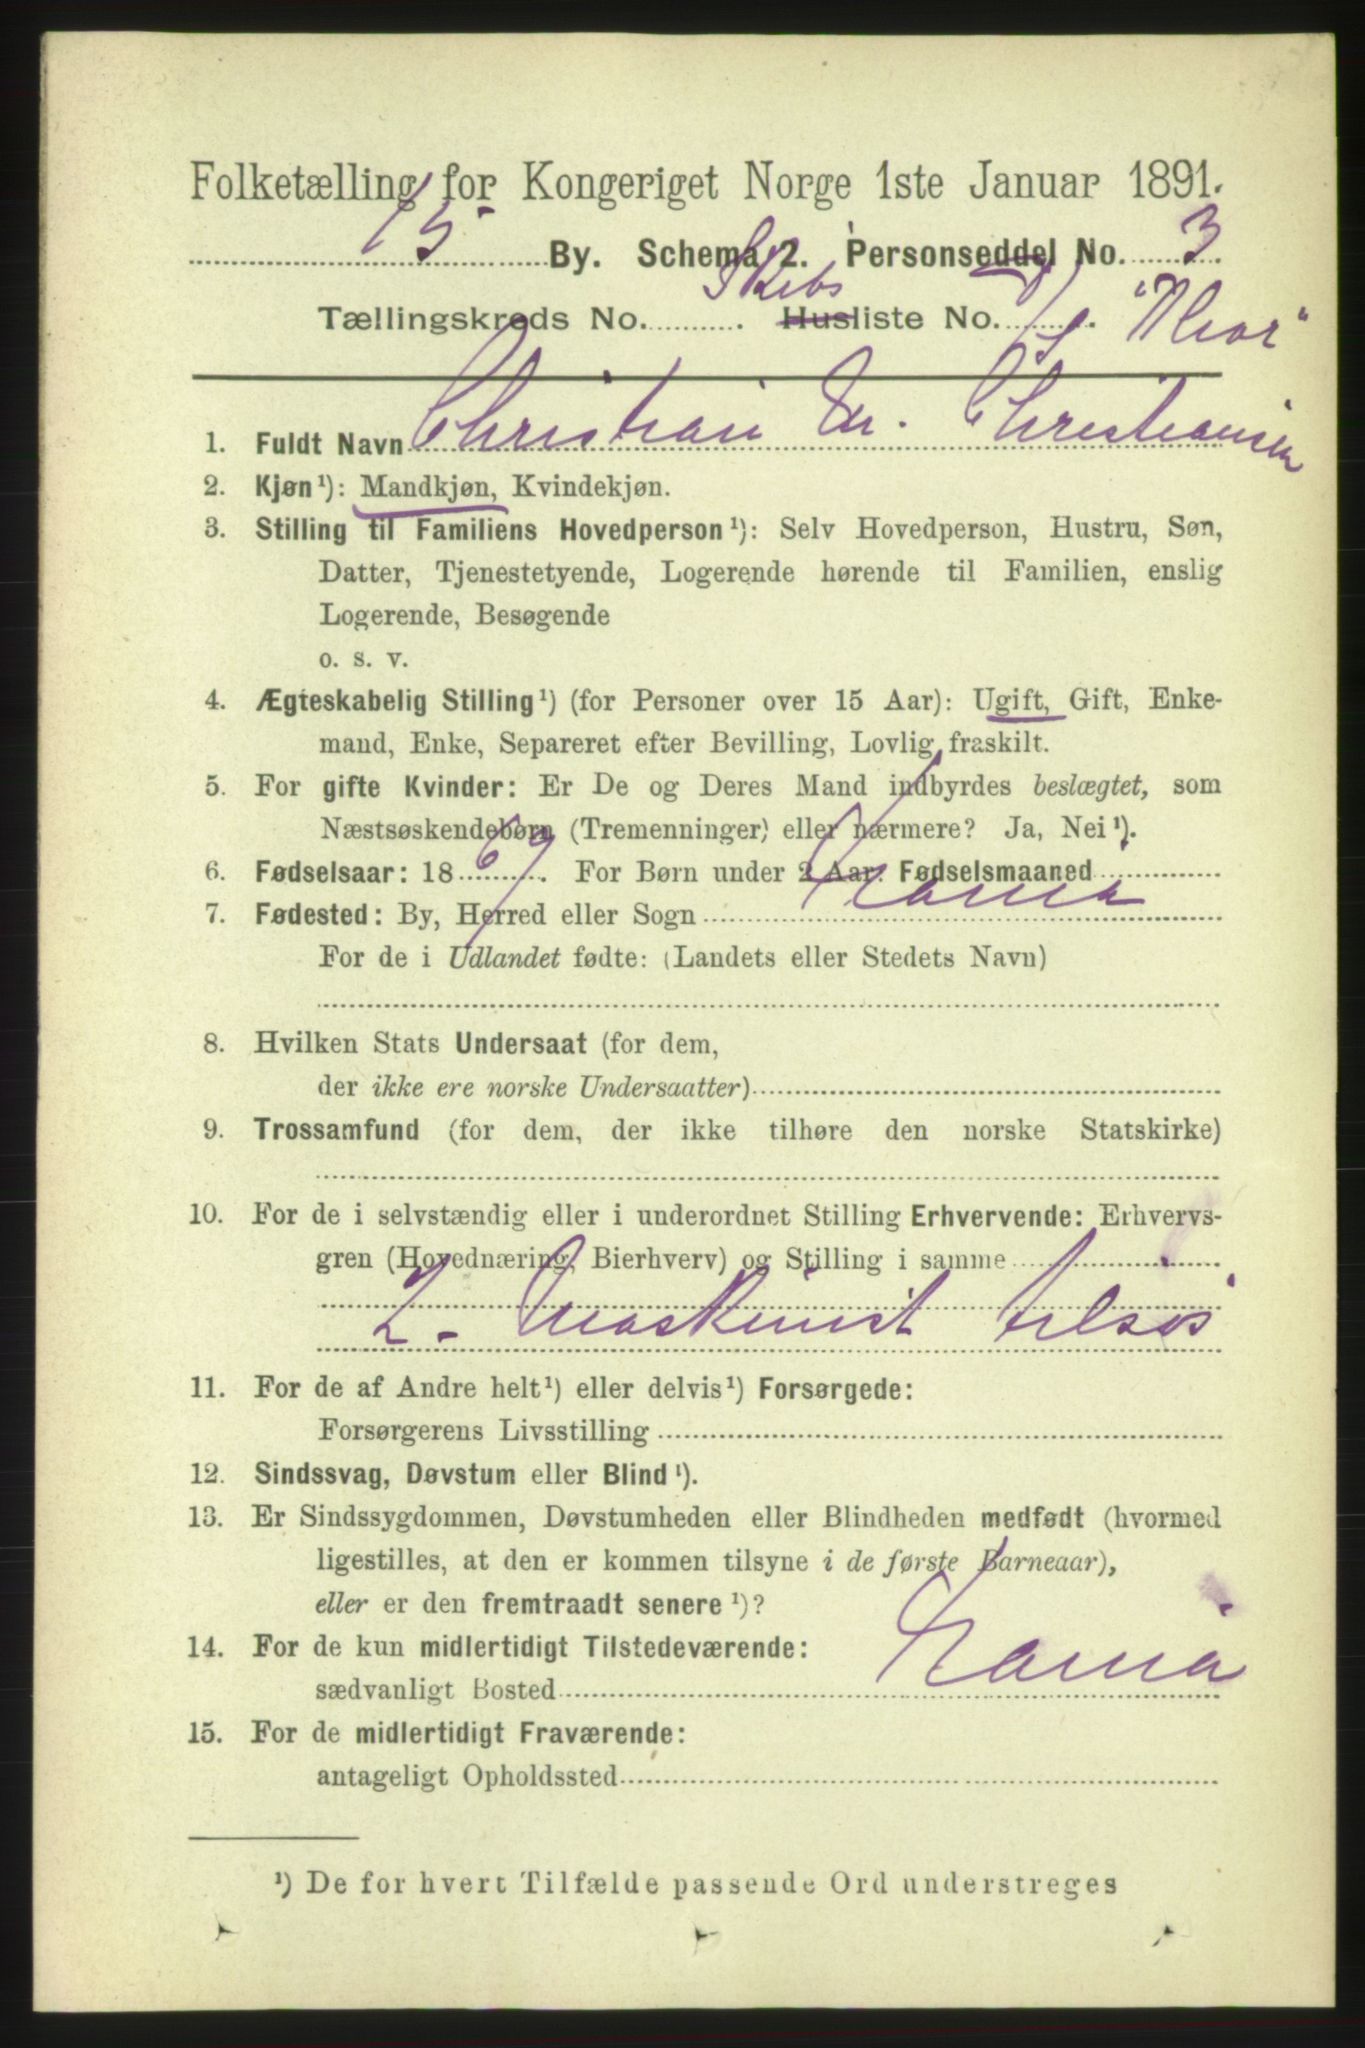 Folketælling for Kongeriget Norge 1ste Januar 1891.
15 By. Schema 2. Personseddel No. 3
Tællingskreds No. Skibs Husliste No. D/S "Thor"
1. Fuldt Navn Christian M. Christiansen
2. Kjøn ¹): Mandkjøn, Kvindekjøn.
3. Stilling til Familiens Hovedperson ¹): Selv Hovedperson, Hustru, Søn,
Datter, Tjenestetyende, Logerende hørende til Familien, enslig
Logerende, Besøgende
o. s. v.
4. Ægteskabelig Stilling ¹) (for Personer over 15 Aar): Ugift, Gift, Enke-
mand, Enke, Separeret efter Bevilling, Lovlig fraskilt.
5. For gifte Kvinder: Er De og Deres Mand indbyrdes beslægtet, som
Næstsøskendebørn (Tremenninger) eller nærmere? Ja, Nei ¹).
6. Fødselsaar: 1869. For Børn under 2 Aar: Fødselsmaaned
7. Fødested: By, Herred eller Sogn
For de i Udlandet fødte: (Landets eller Stedets Navn)
8. Hvilken Stats Undersaat (for dem,
der ikke ere norske Undersaatter)
9. Trossamfund (for dem, der ikke tilhøre den norske Statskirke)
10. For de i selvstændig eller i underordnet Stilling Erhvervende: Erhvervs-
gren (Hovednæring, Bierhverv) og Stilling i samme
2. Maskinist tilsøs
11. For de af Andre helt ¹) eller delvis ¹) Forsørgede:
Forsørgerens Livsstilling
12. Sindssvag, Døvstum eller Blind ¹).
13. Er Sindssygdommen, Døvstumheden eller Blindheden medfødt (hvormed
ligestilles, at den er kommen tilsyne i de første Barneaar),
eller er den fremtraadt senere ¹)?
14. For de kun midlertidigt Tilstedeværende:
sædvanligt Bosted
15. For de midlertidigt Fraværende:
antageligt Opholdssted
¹) De for hvert Tilfælde passende Ord understreges